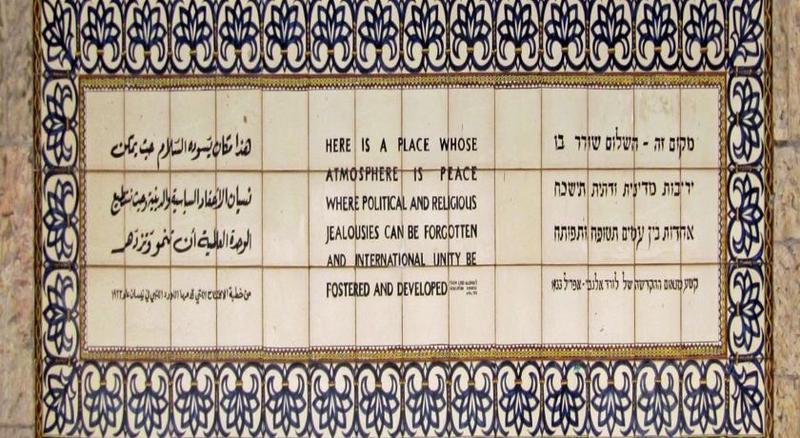 هذا مكان يسوده السلام حيث يمكن
نسيان الأحقاد السياسية والدينية وحيث تستطيع
الوحدة العالمية أن تنمو وتزدهر
من خطبة الافتتاح التي قدمها اللورد اللنبي في نيسان عام ١٩٣٣
HERE IS A PLACE WHOSE
ATMOSPHERE IS PEACE
WHERE POLITICAL AND RELIGIOUS
JEALOUSIES CAN BE FORGOTTEN
AND INTERNATIONAL UNITY BE
FOSTERED AND DEVELOPED
FROM LORD ALLENBY'S
DEDICATION ADDRESS
מקום זה - השלום שורר בו
יריבות מדינית ודתית תישכח
אחדות בין עמים תטופח ותפותח
קטע מנאום ההקדשה של לורד אלנבי-אפריל 1933